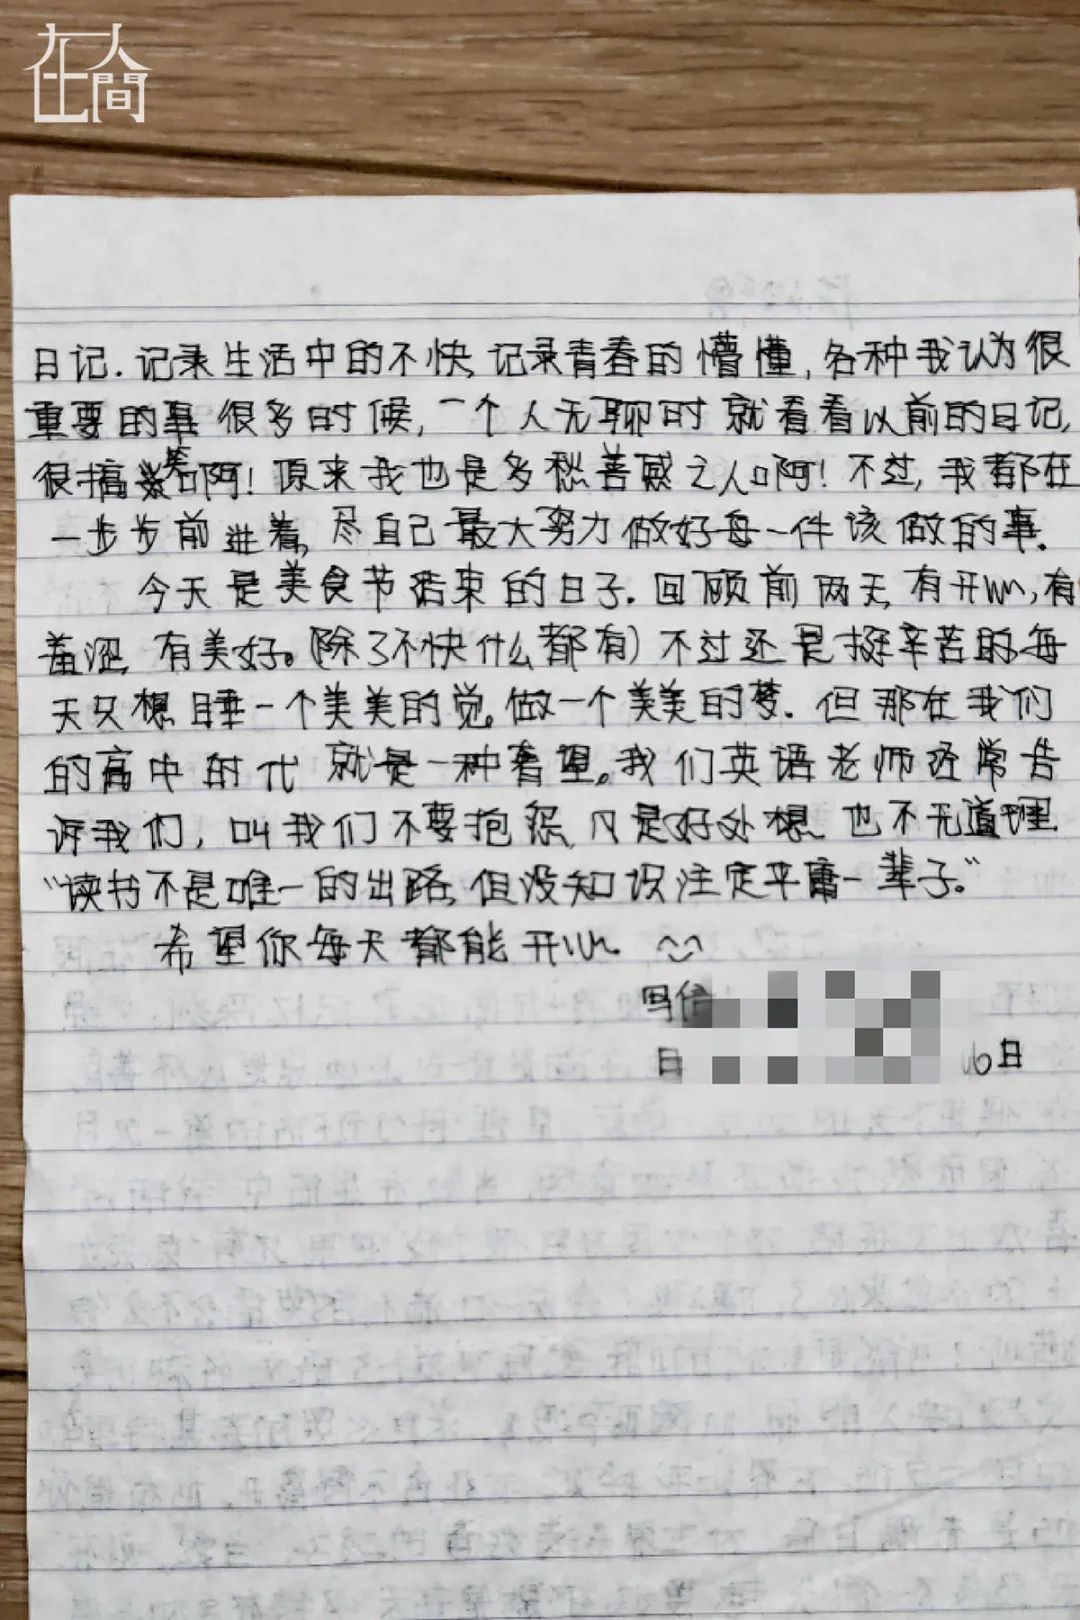 在人間
日记.记录生活中的不快,记录青春的懵懂,各种我认为很
重要的事很多的时候,一个人无聊时就看看以前的日记,
很搞笑啊!原来我也是多愁善感之人啊!不过,我都在
一步步前进着,尽自己最大努力做好每一件该做的事.
今天是美食节结束的日子.回顾前两天,有开心,有
羞涩,有美好。(除了不快什么都有)不过还是挺辛苦的,每
天只想睡一个美美的觉。做一个美美的梦.但那在我们
的高中时代就是一种奢望。我们英语老师经常告
诉我们,叫我们不要抱怨,凡是好处想,也不无道理
“读书不是唯一的出路,但没知识注定平庸一辈子。”
希望你每天都能开心.
写信
日 日